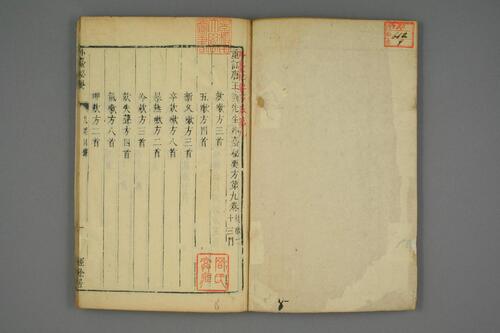 重訂唐王燾先生外臺秘要方第九卷
十三門
欬嗽方三首
五嗽方四首
新久欬方三首
卒欬嗽方八首
暴熱欬方二首
冷欬方三首
欬失聲方四首
氣嗽方八首
呷欬方二首
外臺秘要
九卷目錄
一
經餘居